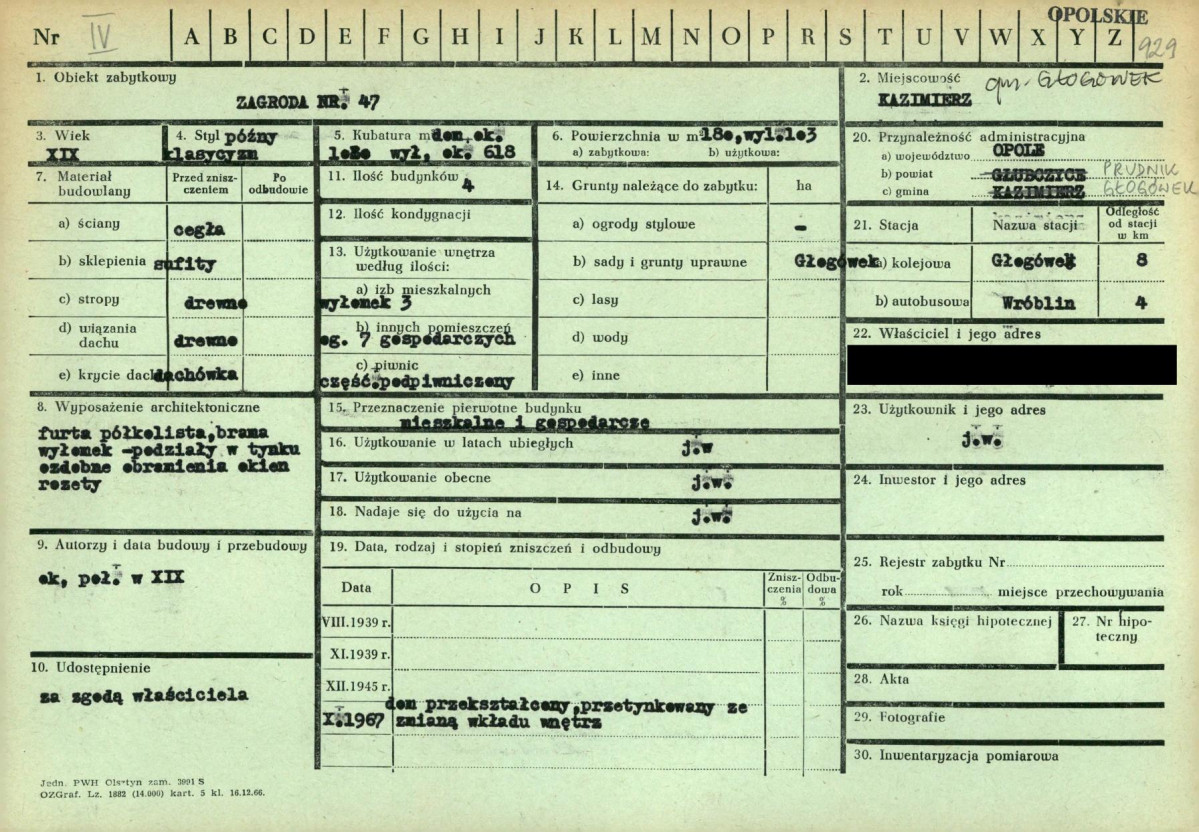 OPOLSKIE
929
Nr IV A B C D E F G H I J K L M N O P R S T U V W X Y Z
1. Obiekt zabytkowy
ZAGRODA NR. 47
2. Miejscowość gm. GŁOGÓWEK
KAZIMIERZ
3. Wiek
XIX
4. Styl późny
klasycyzm
5. Kubatura m dom ok.
wył, ok. 618
6. Powierzchnia w m²
a) zabytkowa: b) użytkowa:
20. Przynależność administracyjna
a) województwo OPOLE
b) powiat GŁUBCZYCE PRUDNIK
c) gmina KAZIMIERZ GŁOGÓWEK
7. Materiał budowlany
Przed zniszczeniem
Po odbudowie
a) ściany cegła
b) sklepienia sufity
c) stropy drewno
d) wiązania dachu drewno
e) krycie dachu dachówka
11. Ilość budynków 4
12. Ilość kondygnacji
13. Użytkowanie wnętrza
według ilości:
a) izb mieszkalnych
wyłomek 3
b) innych pomieszczeń
og. 7 gospodarczych
c) piwnic
część.podpiwniczony
14. Grunty należące do zabytku: ha
a) ogrody stylowe -
b) sady i grunty uprawne
c) lasy
d) wody
e) inne
21. Stacja
Nazwa stacji
Odległość
od stacji
w km
a) kolejowa Głogówek Głogówek 8
b) autobusowa Wróblin 4
22. Właściciel i jego adres
8. Wyposażenie architektoniczne
furta półkolista,brama
wyłomek -podziały w tynku
ozdobne obramienia okien
rozety
15. Przeznaczenie pierwotne budynku
mieszkalne i gospodarcze
16. Użytkowanie w latach ubiegłych j.w
17. Użytkowanie obecne j.w.
18. Nadaje się do użycia na j.w.
23. Użytkownik i jego adres
j.w.
24. Inwestor i jego adres
9. Autorzy i data budowy i przebudowy
ok, poł. w XIX
10. Udostępnienie
za zgodą właściciela
19. Data, rodzaj i stopień zniszczeń i odbudowy
Data
O P I S
Zniszczenia
%
Odbudowa
%
VIII.1939 r.
XI.1939 r.
XII.1945 r.
dom przekształcony,przetynkowany ze
X.1967 zmianą wkładu wnętrz
25. Rejestr zabytku Nr
rok miejsce przechowywania
26. Nazwa księgi hipotecznej
27. Nr hipoteczny
28. Akta
29. Fotografie
30. Inwentaryzacja pomiarowa
Jedn. PWH Olsztyn zam. 3991 S
OZGraf. Lz. 1882 (14.000) kart. 5 kl. 16.12.66.